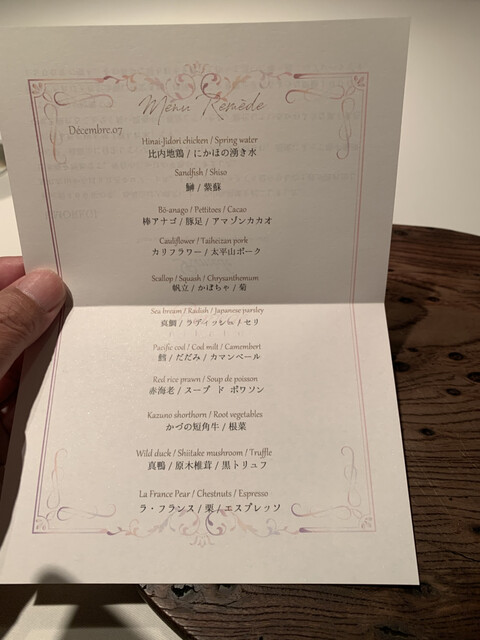 Menu Remède
Décembre.07
Hinai-Jidori chicken / Spring water
比内地鶏 / にかほの湧き水
Sandfish / Shiso
鰰 / 紫蘇
Bō-anago / Pettitoes / Cacao
棒アナゴ / 豚足 / アマゾンカカオ
Cauliflower / Taiheizan pork
カリフラワー / 太平山ポーク
Scallop / Squash / Chrysanthemum
帆立 / かぼちゃ / 菊
Sea bream / Radish / Japanese parsley
真鯛 / ラディッシュ / セリ
Pacific cod / Cod milt / Camembert
鱈 / だだみ / カマンベール
Red rice prawn / Soup de poisson
赤海老 / スープ ド ポワソン
Kazuno shorthorn / Root vegetables
かづの短角牛 / 根菜
Wild duck / Shiitake mushroom / Truffle
真鴨 / 原木椎茸 / 黒トリュフ
La France Pear / Chestnuts / Espresso
ラ・フランス / 栗 / エスプレッソ